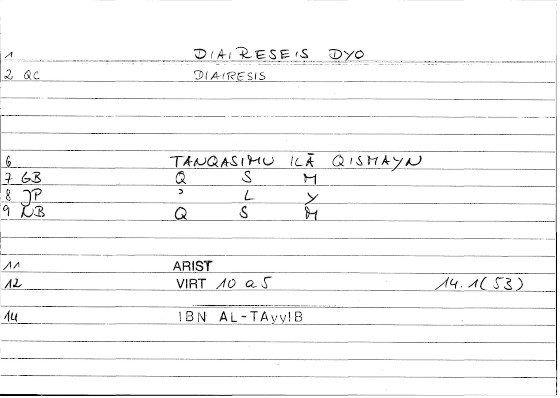 1 DIAIRESEIS DYO
2 QC DIAIRESIS
6 TANQASIMU ILĀ QISMAYN
7 GB Q S M
8 JP ʾ L Y
9 NB Q S M
11 ARIST
12 VIRT 10 a 5 14.1(53)
14 IBN AL-TAyyIB